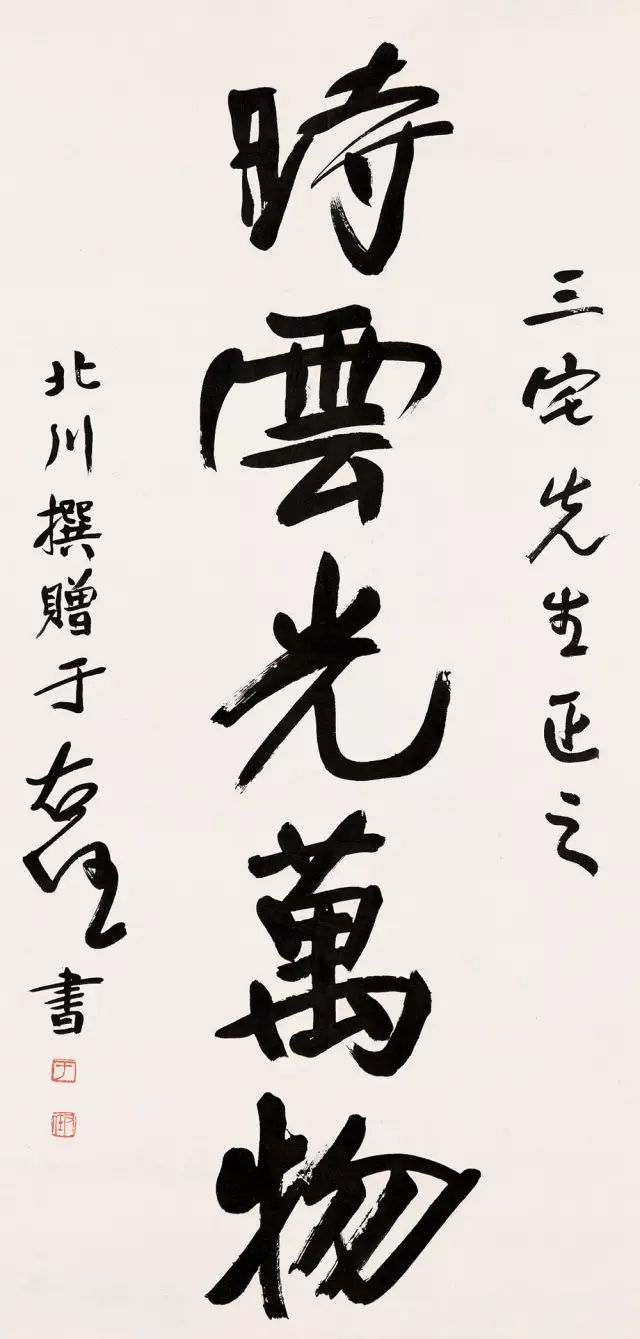 三宅先生正之
時雲光萬物
北川撰贈于右任書
于
任